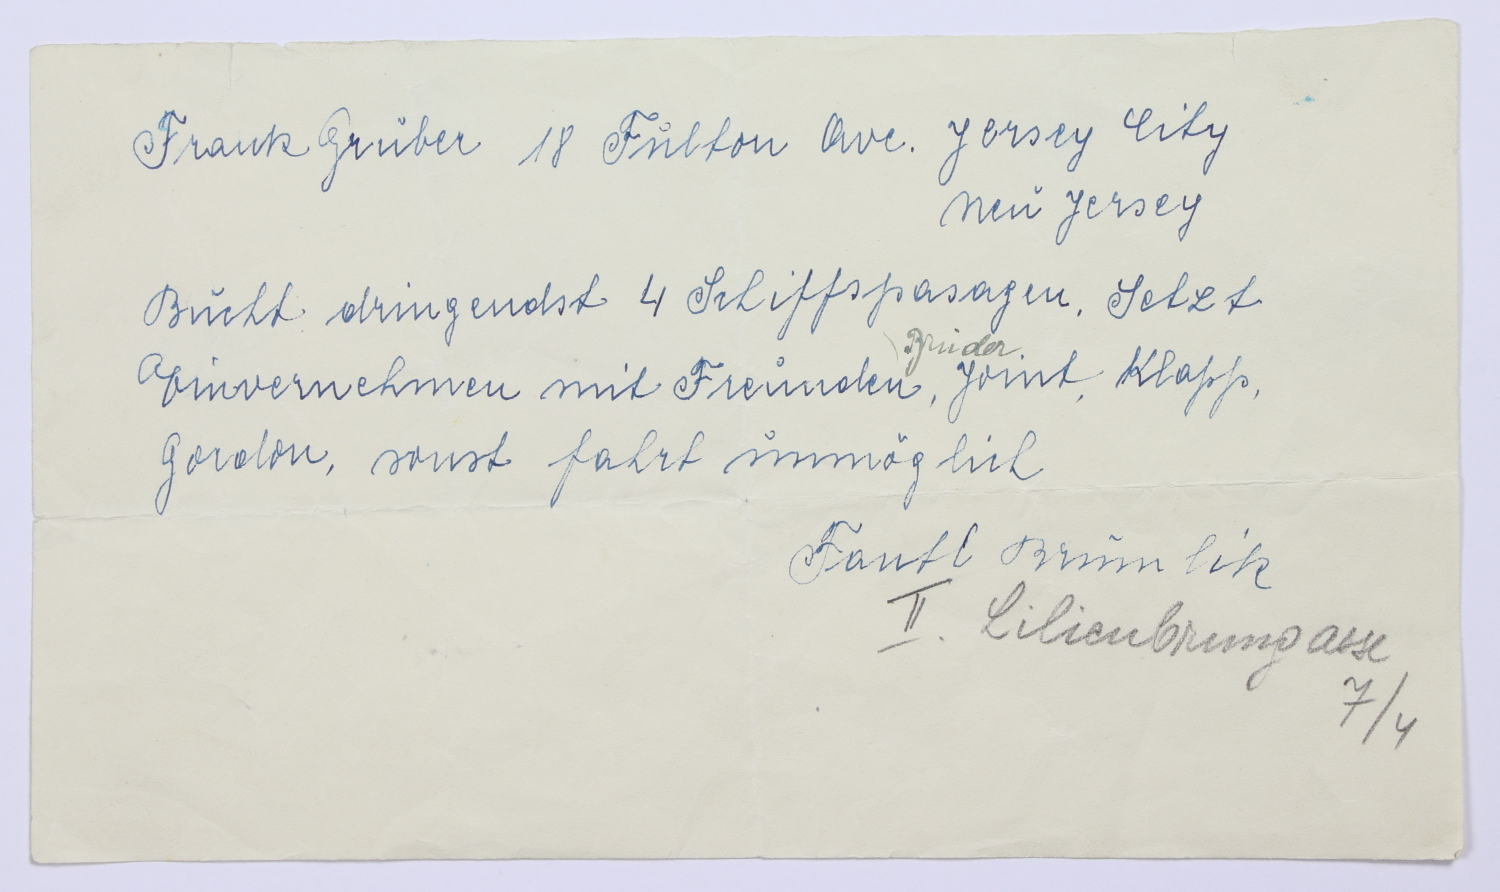 Frank Gruber 18 Fulton Ave. Jersey City
Neu Jersey
Bucht dringendst 4 Schiffspasagen. Setzt
Bruder
Einvernehmen mit Freunden, Joint, Klapp,
Gordon, sonst fahrt unmöglich
Fantl Brumlik
II. Lilienbrungasse
7/4